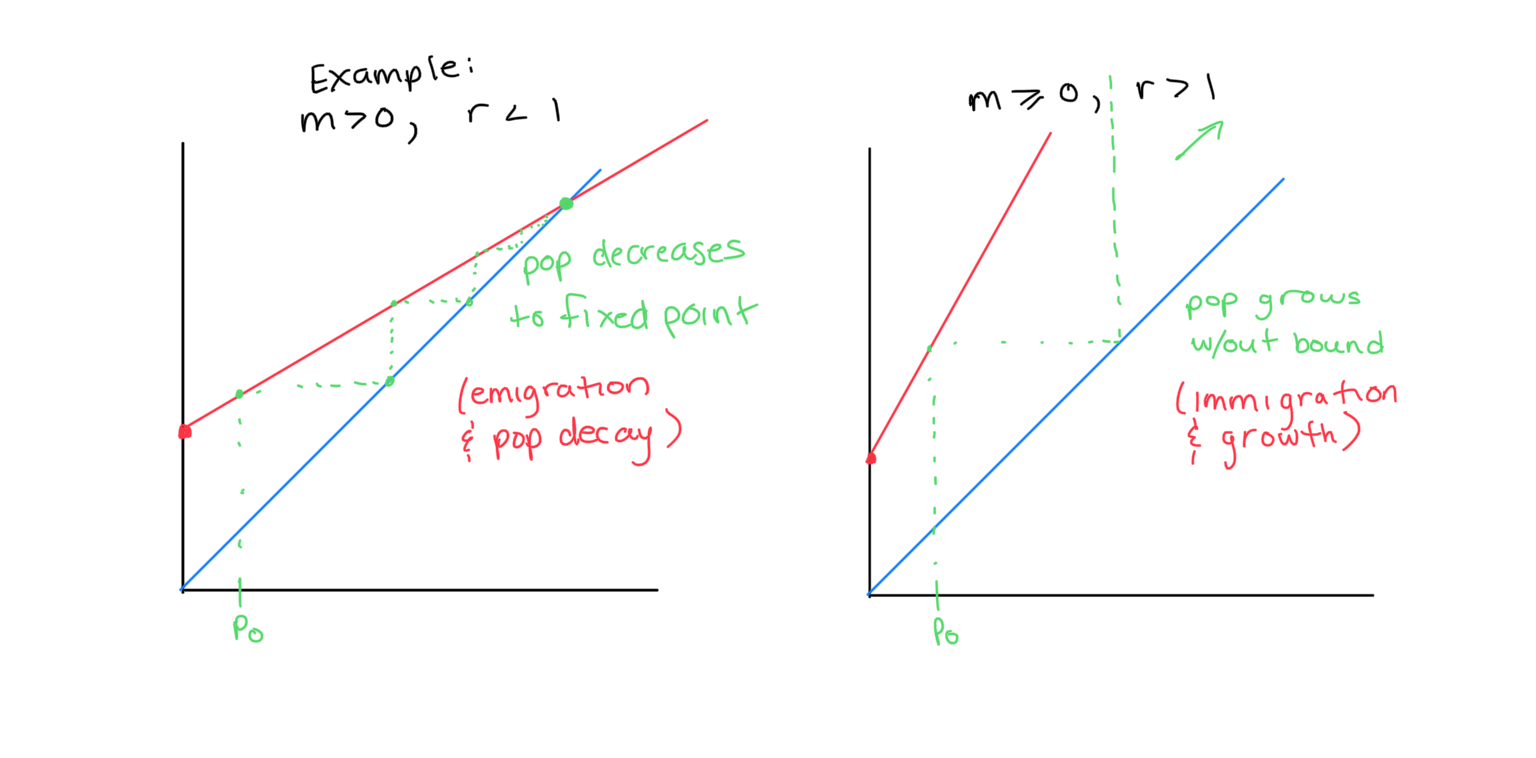 Example:
m>0, r<1
pop decreases
to fixed point
(emigration
& pop decay)
P₀
m⩾0, r>1
pop grows
w/out bound
(immigration
& growth)
P₀